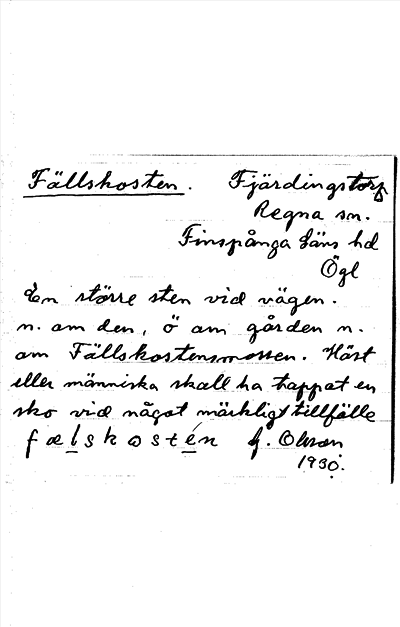 Fällskosten. Fjärdingstorp
Regna sn.
Finspånga Läns hd
Ögl
En större sten vid vägen.
n. om den, ö om gården n.
om Fällskostensmossen. Häst
eller människa skall ha tappat en
sko vid något märkligt tillfälle
f æ l s k o s t é n G. Olsson
1930.